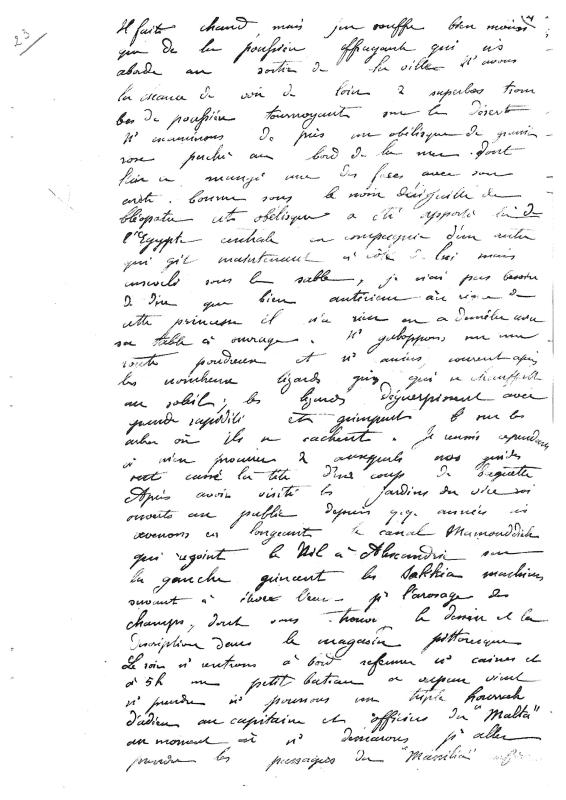 23
Il fait chaud, mais j'en souffre bien moins
que de la poussière effrayante qui ns
aborde au sortir de la ville. Ns avons
la chance de voir de loin 2 superbes trom
bes de poussière tournoyant sur le désert
Ns examinons de près un obélisque de granit
rose perché au bord de la mer dont
l'air a mangé une des faces avec son
Connu sous le nom de
Cléopatre cette obélisque a été apporté ici de
l'Egypte centrale en compagnie d'un autre
qui gît maintenant à côté de lui mais
enseveli sous le sable, je n'ai pas besoin
de dire que bien antérieur au règne de
cette princesse il n'a rien eu a démêler avec
sa table à ouvrage. Ns galoppons sur une
route poudreuse et ns amusons courent après
les nombreux lézards gris qui se chauffent
au soleil; les lézards déguerpissent avec
grande rapidité et grimpent sur les
arbres où ils se cachent. Je réussis cependant
à m'en procurer 2 auxquels nos guides
ont cassé la tête d'un coup de baguette
Après avoir visité les jardins du vice roi
ouverts au public depuis qq. années ns
revenons en longeant le canal Mamouddieh
qui rejoint le Nil à Alexandrie sur
la gauche grincent les Sakkia machines
servant à élever l'eau pr l'arrosage des
champs, dont vous trouverez le dessin et la
description dans le magasin pittoresque
Le soir ns rentrons à bord refermer ns caisses et
à 5h un petit bateau à vapeur vient
ns prendre ns poussons un triple hourrah
d'adieu au capitaine et officiers du "Malta"
au moment où ns démarrons pr aller
prendre les passages du "Massilia"